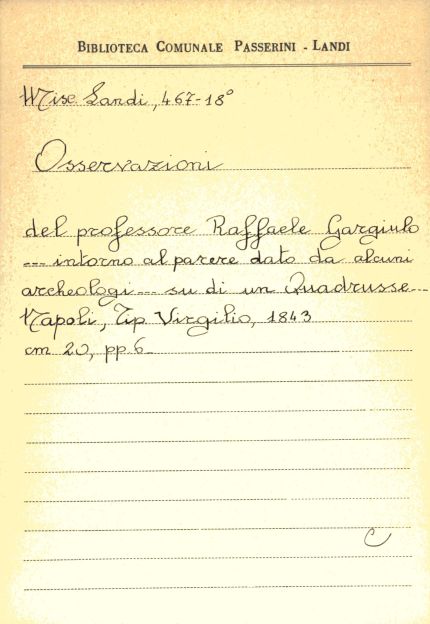 BIBLIOTECA COMUNALE PASSERINI - LANDI
Misc Landi, 467-18°
Osservazioni
del professore Raffaele Gargiulo
--- intorno al parere dato da alcuni
archeologi --- su di un Quadrusse---
Napoli, Tip Virgilio, 1843
cm 20, pp 6
C